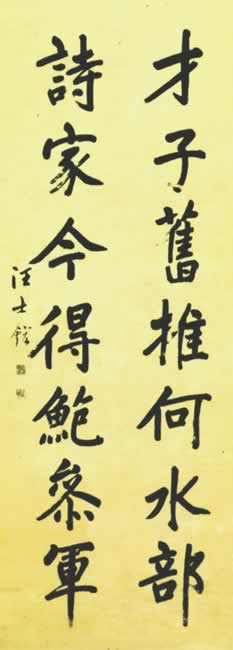 才子舊推何水部
詩家今得鮑叅軍
汪士鋐